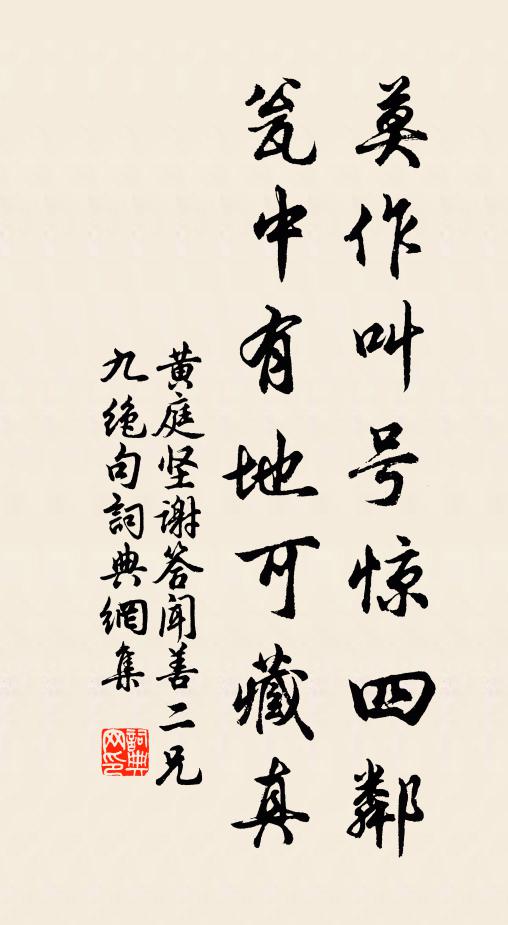 莫作叫号惊四鄰
瓮中有地可藏真
黄庭坚谢答闻善二兄
九绝句詞典網集
詞典网印